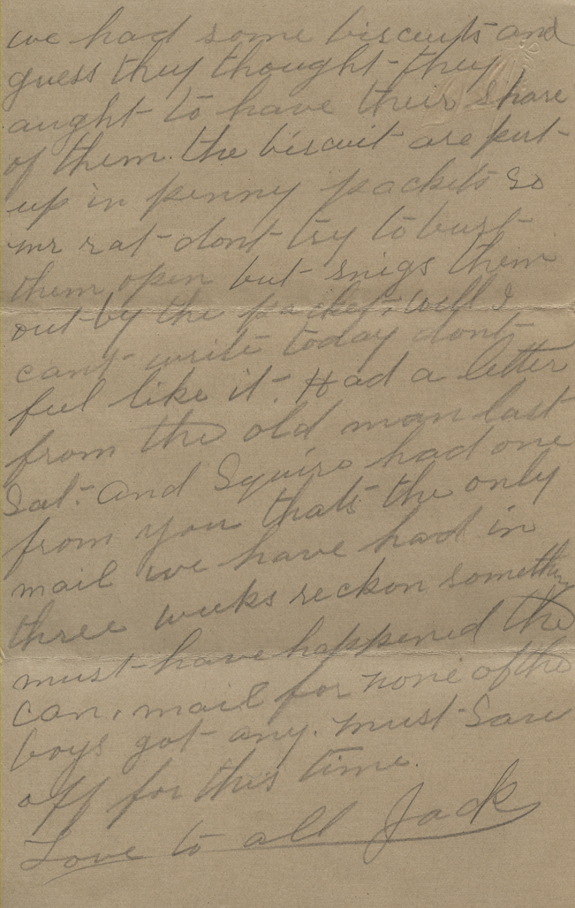 we had some biscuits and
guess they thought they
aught to have their share
of them. the biscuit are put
up in penny packets so
mr rat dont try to bust
them open but snigs them
out by the packet. Well I
cant write today dont
feel like it. Had a letter
from the old man last
Sat. and Squire had one
from you thats the only
mail we have had in
three weeks reckon something
must have happened the
can. mail for none of the
boys got any. must Saw
off for this time.
Love to all Jack